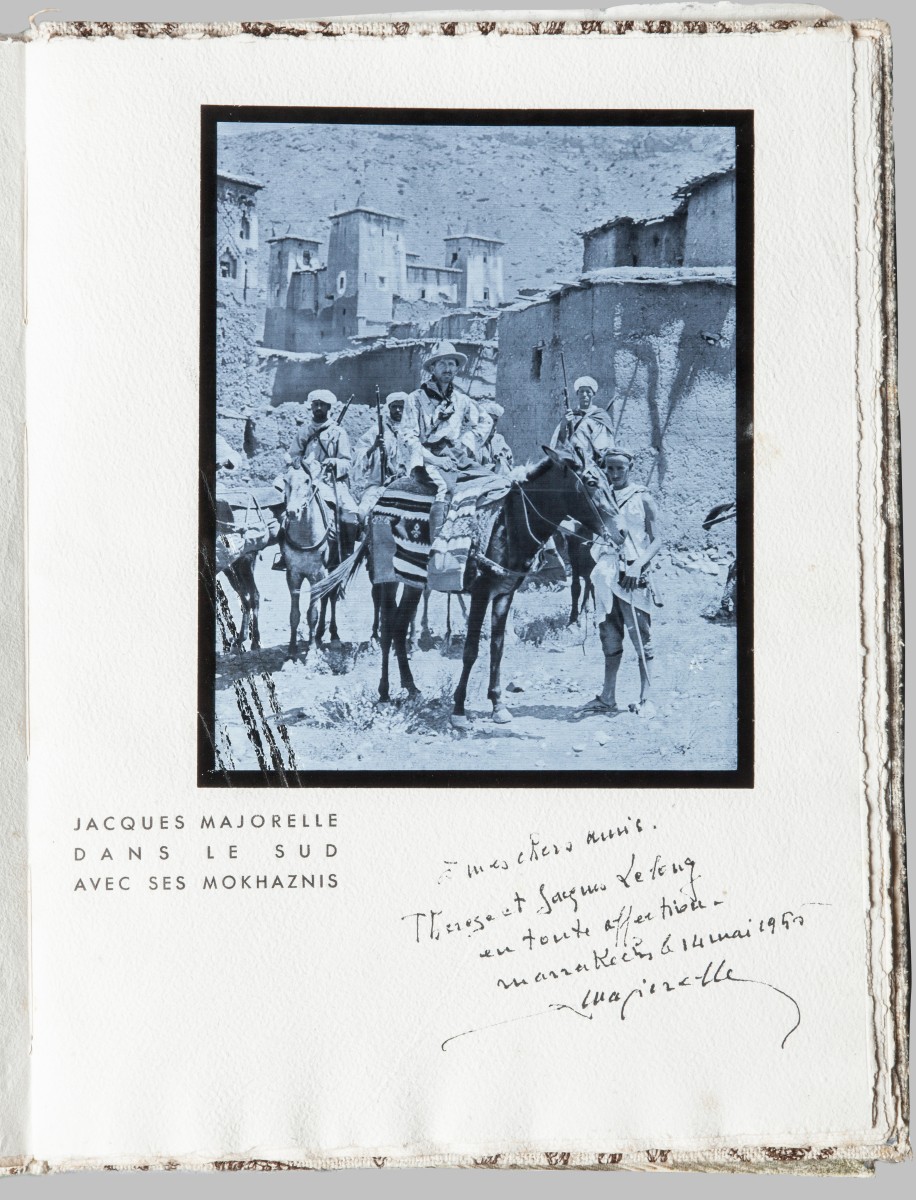 JACQUES MAJORELLE
DANS LE SUD
AVEC SES MOKHAZNIS
à mes chers amis.
Therese et Jacques Lelong
en toute affection -
marrakech le 14 mai 1955
Majorelle